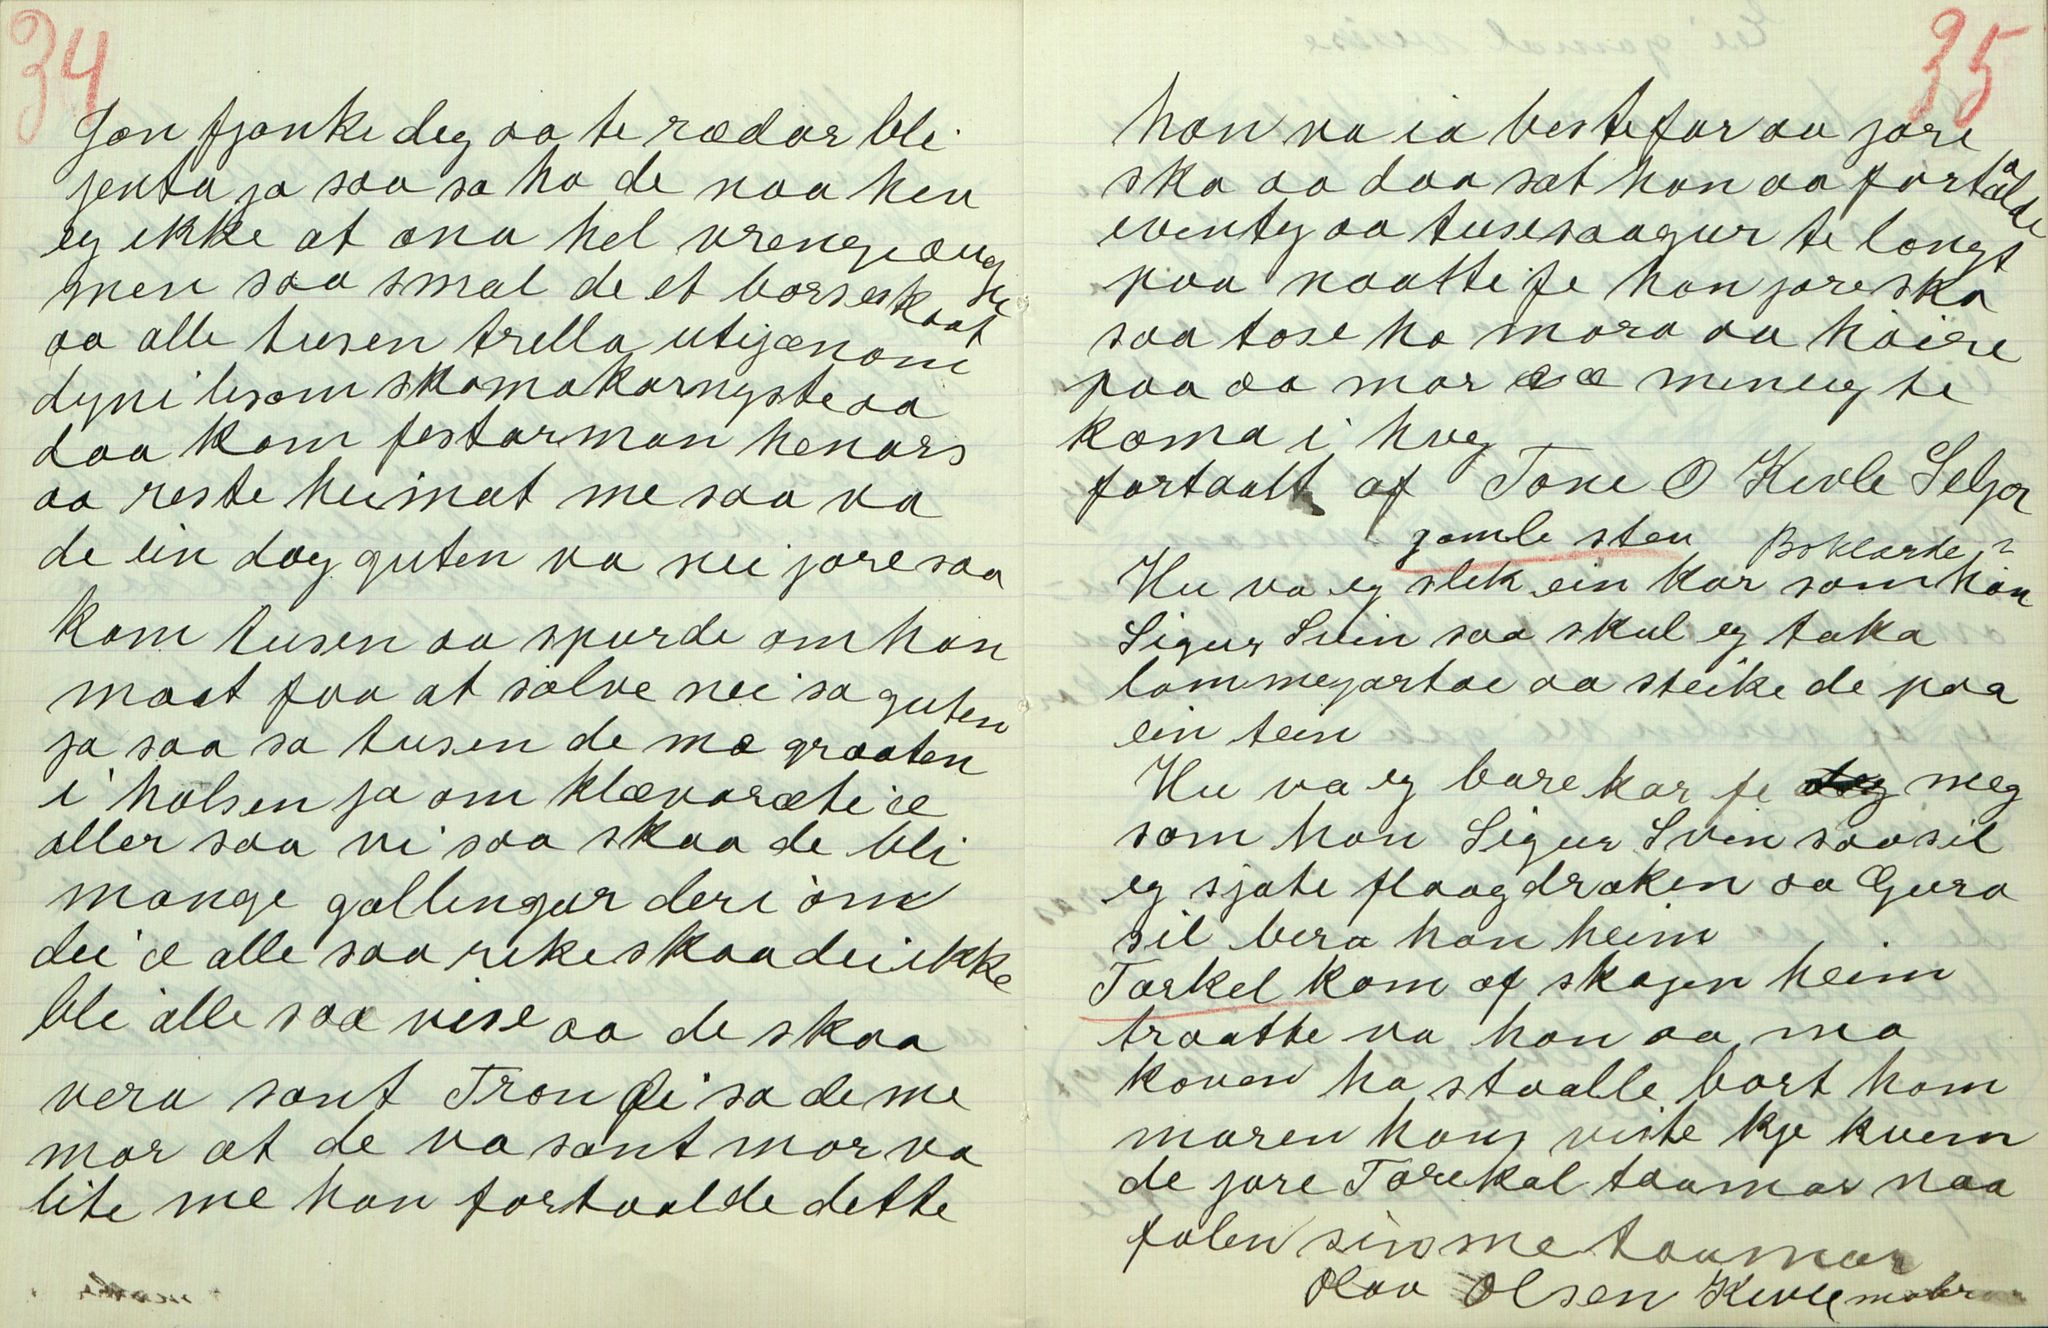 34
Jon fjonke deg aa te rædar bli
jenta ja saa sa ho de naa hen
eg ikke at ana hel vrengeaugu
men saa smal de et børseskaat
aa alle tusen trella utigjænom
dyni lesom skomakarnysteaa
daa kom festarman henars
aa reste heimat me saa va
de ein dag guten va nei jore saa
kom tusen aa spurde om han
maat faa at sølve nei sa guten
ja saa sa tusen de mæ graaten
i halsen ja om klævaræti æ
aller saa vi saa skaa de bli
mange gallingar der i om
dei æ alle saa rike skaa dei ikke
bli alle saa vise aa de skaa
vera sant Tron fi sa de me
mor at de va sant mor va
lite me han fortaalde dette
35
han va ia bestefar aa jore
ska aa daa sat han aa fortålde
eventy aa tusesaagur te langt
paa naatti fe han jore ska
saa tose ho mora aa håire
paa aa mor æ æ mineug te
koma i hug
fortaalt af Tone O Kivle Seljor
gamle sten Boklarde ?
Hu va eg slik ein kar som han
Sigur Svin saa skul eg taka
lommegortæ aa steike de paa
ein tein
Hu va eg bare kar fe meg
som han Sigur Svin saa sil
eg sjote flaagdraken aa Guro
sil bera han heim
Torkel kom af skogen heim
traatte va han aa mo
koven ha staalle bort ham
maren hang viste kje kvem
de jore Torekal taamar naa
folen sin me taamar
Olav Olsen Kivle